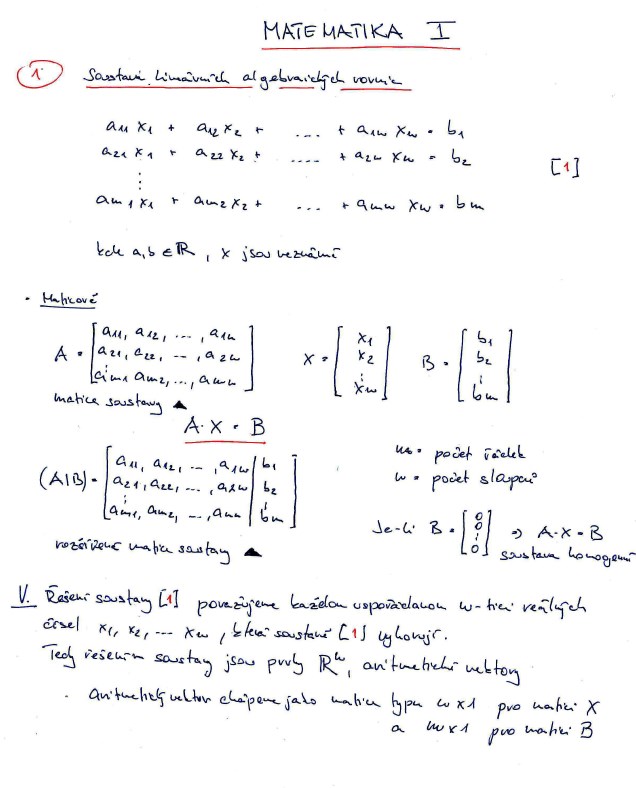 MATEMATIKA I
1. Soustavy lineárních algebraických rovnic
a11 x1 + a12 x2 + .... + a1n xn = b1
a21 x1 + a22 x2 + ..... + a2n xn = b2 [1]
⋮
am1 x1 + am2 x2 + ... + amn xn = bm
kde a,b ∈ ℝ, x jsou neznámé
• Maticově
A = [a11, a12, ..., a1n; a21, a22, ..., a2n; ⋮ am1, am2, ..., amn] X = [x1 x2 ⋮ xn] B = [b1 b2 ⋮ bm]
matice soustavy ▲
A·X = B
m = počet řádek
(A|B) = [a11, a12, ..., a1n | b1; a21, a22, ..., a2n | b2; ⋮ am1, am2, ..., amn | bm]
n = počet sloupců
Je-li B = [0 0 ⋮ 0] ⇒ A·X = B
soustava homogenní
rozšířená matice soustavy ▲
V. Řešení soustavy [1] považujeme každou uspořádanou n-tici reálných
čísel x1, x2, ... xn, která soustavě [1] vyhovuje.
Tedy řešením soustavy jsou prvky ℝⁿ, aritmetické vektory
. Aritmetický vektor chápeme jako matici typu n x 1 pro matici X
a m x 1 pro matici B